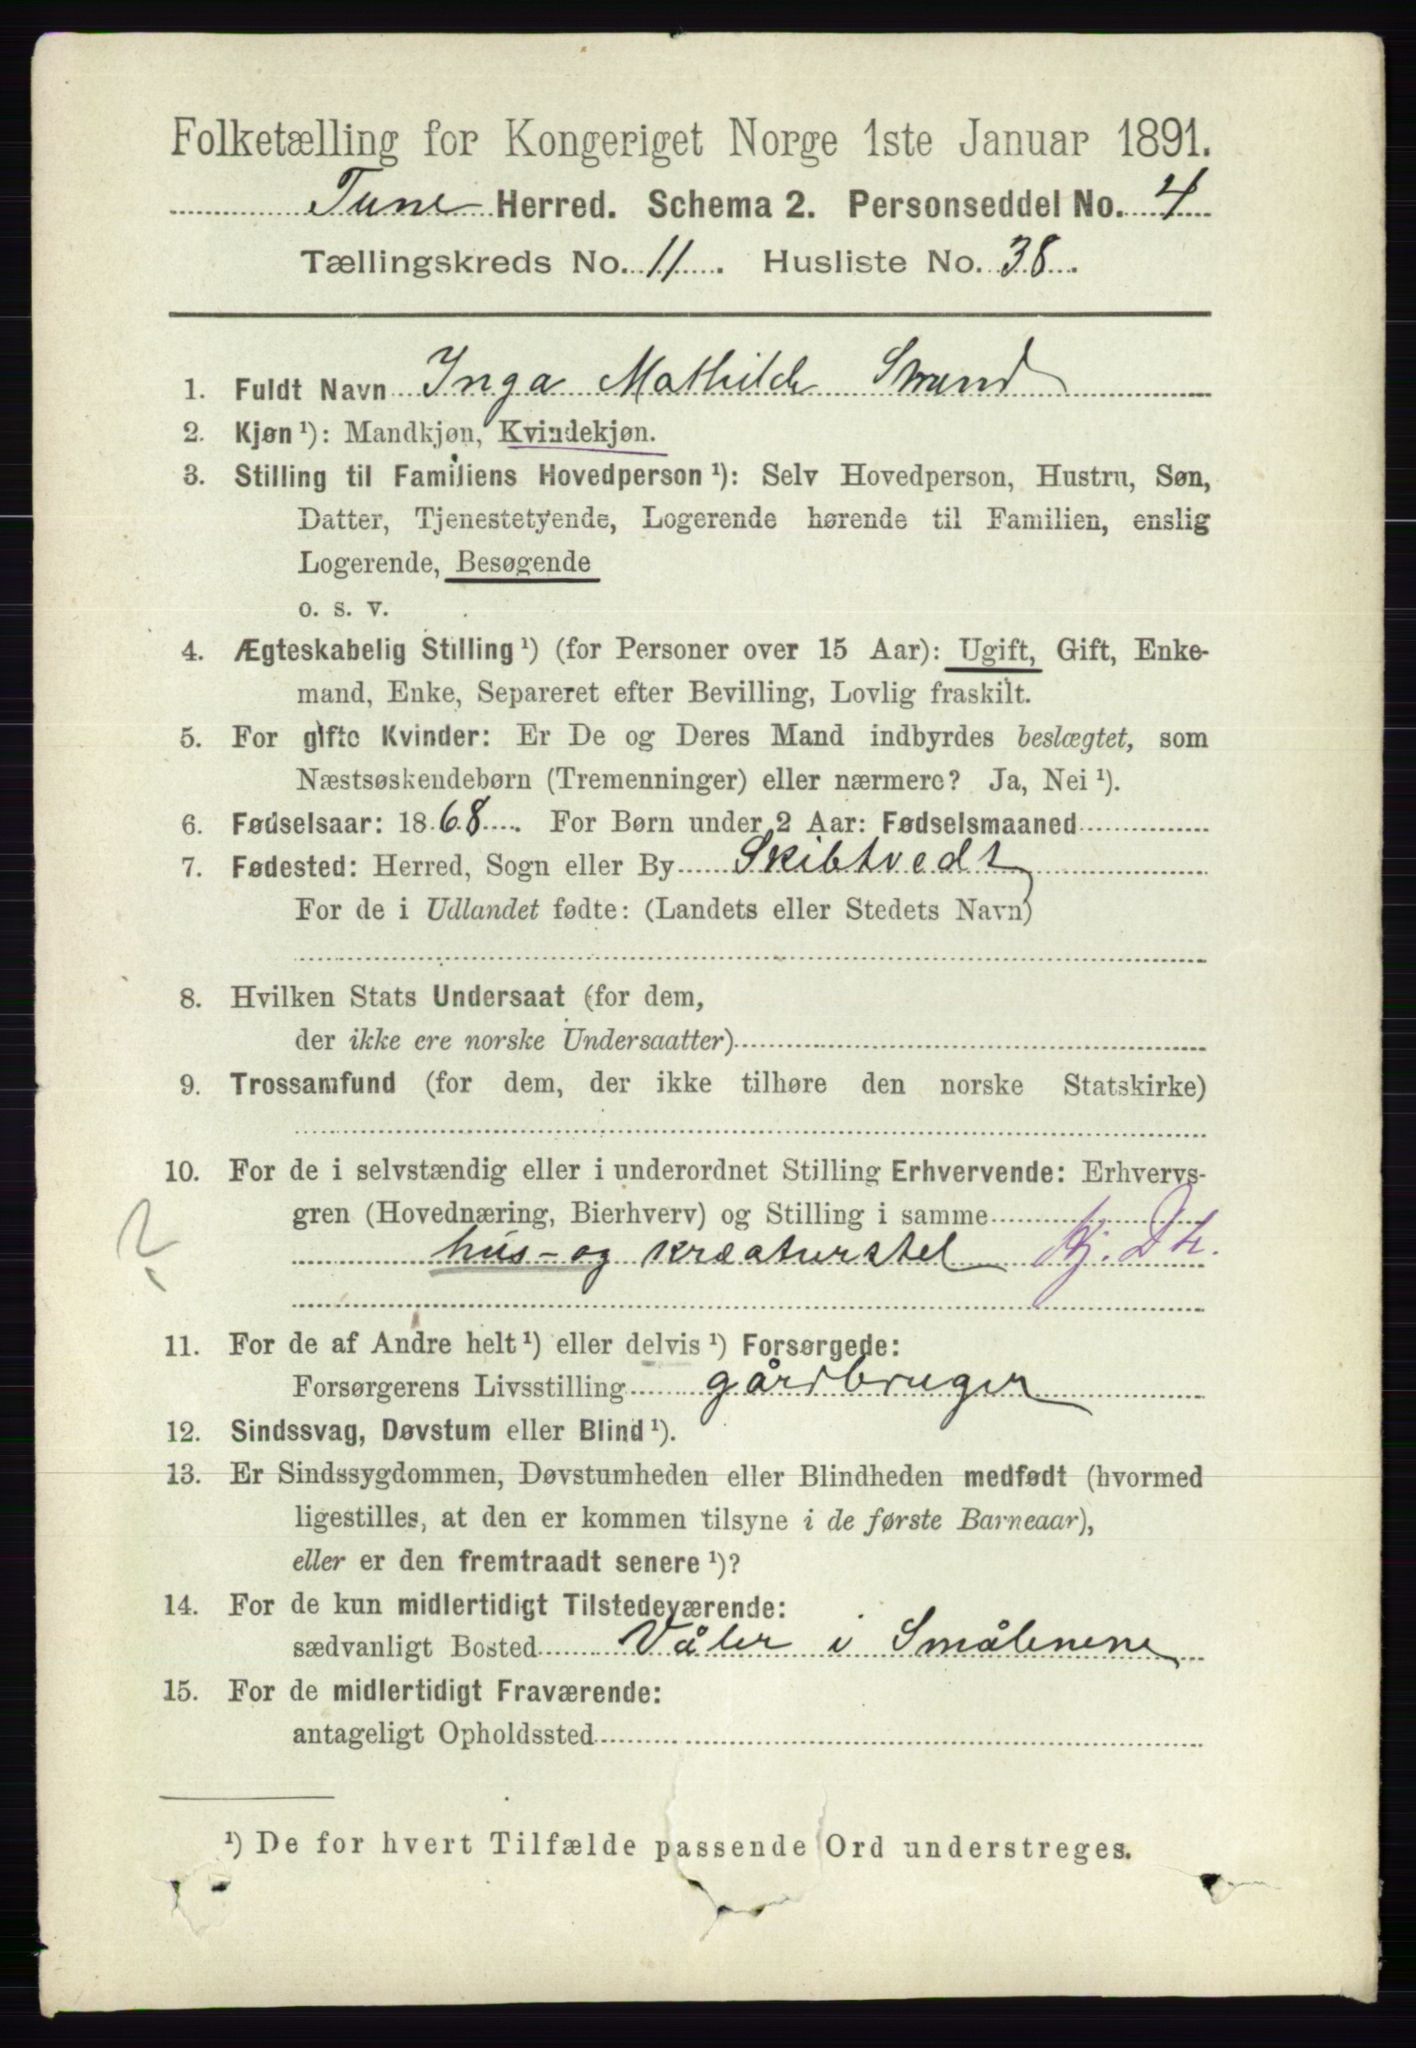 Folketælling for Kongeriget Norge 1ste Januar 1891.
Tune Herred. Schema 2. Personseddel No. 4
Tællingskreds No. 11. Husliste No. 38.
1. Fuldt Navn Inga Mathilde Strand
2. Kjøn ¹): Mandkjøn, Kvindekjøn.
3. Stilling til Familiens Hovedperson ¹): Selv Hovedperson, Hustru, Søn,
Datter, Tjenestetyende, Logerende hørende til Familien, enslig
Logerende, Besøgende
o. s. v.
4. Ægteskabelig Stilling ¹) (for Personer over 15 Aar): Ugift, Gift, Enke-
mand, Enke, Separeret efter Bevilling, Lovlig fraskilt.
5. For gifte Kvinder: Er De og Deres Mand indbyrdes beslægtet, som
Næstsøskendebørn (Tremenninger) eller nærmere? Ja, Nei ¹).
6. Fødselsaar: 1868. For Børn under 2 Aar: Fødselsmaaned
7. Fødested: Herred, Sogn eller By Skibtvedt
For de i Udlandet fødte: (Landets eller Stedets Navn)
8. Hvilken Stats Undersaat (for dem,
der ikke ere norske Undersaatter)
9. Trossamfund (for dem, der ikke tilhøre den norske Statskirke)
10. For de i selvstændig eller i underordnet Stilling Erhvervende: Erhvervs-
gren (Hovednæring, Bierhverv) og Stilling i samme
? hus- og kræaturstel Hj. Dtr.
11. For de af Andre helt ¹) eller delvis ¹) Forsørgede:
Forsørgerens Livsstilling gårdbruger
12. Sindssvag, Døvstum eller Blind ¹).
13. Er Sindssygdommen, Døvstumheden eller Blindheden medfødt (hvormed
ligestilles, at den er kommen tilsyne i de første Barneaar),
eller er den fremtraadt senere ¹)?
14. For de kun midlertidigt Tilstedeværende:
sædvanligt Bosted Våler i Smålenene
15. For de midlertidigt Fraværende:
antageligt Opholdssted
¹) De for hvert Tilfælde passende Ord understreges.